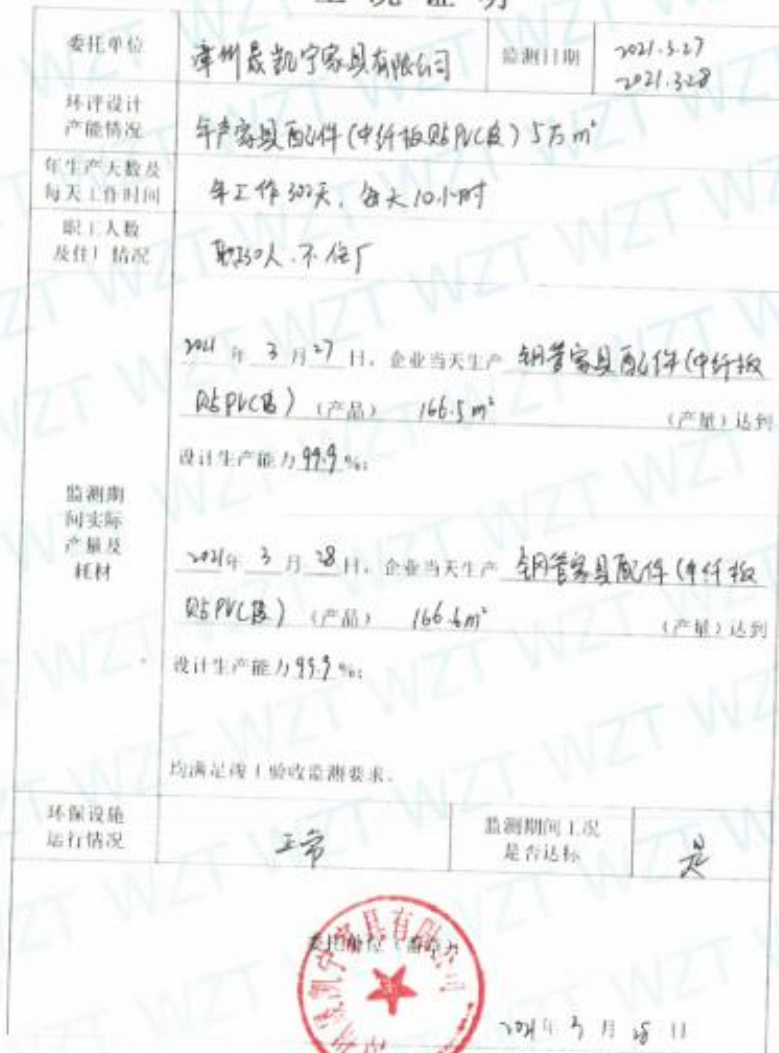 工况证明
委托单位 漳州晟凯宁家具有限公司 监测日期 2021.3.27
2021.3.28
环评设计
产能情况 年产家具配件(中纤板贴PVC皮)5万m²
年生产天数及
每天工作时间 年工作300天,每天10小时
职工人数
及住厂情况 职工30人,不住厂
2021年3月27日,企业当天生产 钢管家具配件(中纤板
贴PVC皮)(产品) 166.5m² (产量)达到
设计生产能力99.9%;
监测期
间实际
产量及
耗材
2021年3月28日,企业当天生产 钢管家具配件(中纤板
贴PVC皮)(产品) 166.6m² (产量)达到
设计生产能力99.9%;
均满足竣工验收监测要求。
环保设施
运行情况 正常 监测期间工况
是否达标 是
委托单位(盖章)
2021年3月28日
WZT